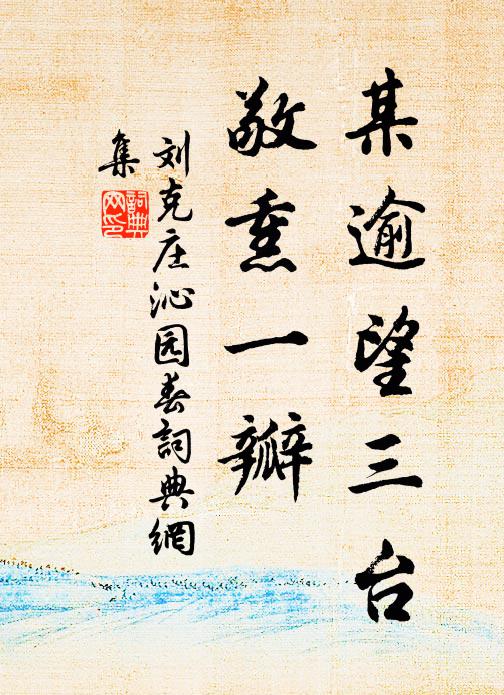 某逾望三台
敬熏一瓣
刘克庄沁园春詞典網
集
詞典网印